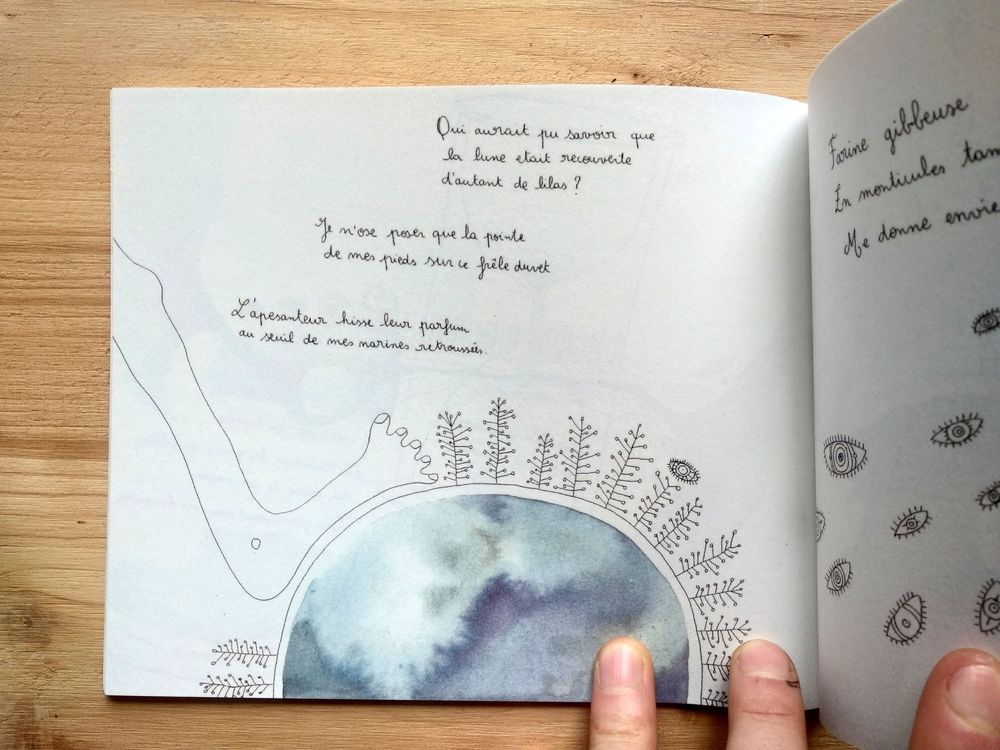 Qui aurait pu savoir que
la lune etait recouverte
d'autant de lilas ?
Je n'ose poser que la pointe
de mes pieds sur ce frêle duvet
L'apesanteur hisse leur parfum
au seuil de mes narines retroussées.
Farine gibbeuse
En monticules tam
Me donne envie